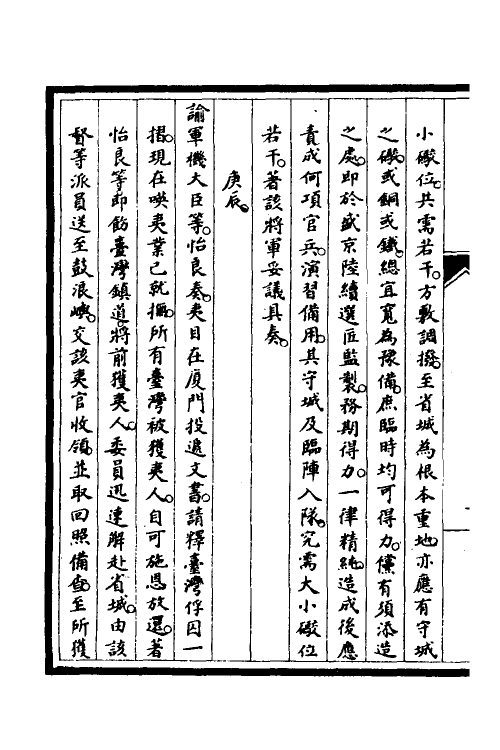 小礮位。共需若干。方敷調撥。至省城為根本重地。亦應有守城
之礮。或銅或鐵。總宜寬為豫備。庶臨時均可得力。儻有須添造
之處。即於盛京陸續選匠監製。務期得力。一律精純。造成後。應
責成何項官兵。演習備用。其守城及臨陣入隊。究需大小礮位
若干。著該將軍妥議具奏。
庚辰。
諭軍機大臣等。怡良奏。夷目在廈門投遞文書。請釋臺灣俘囚一
摺。現在㗸夷業已就撫。所有臺灣被獲夷人。自可施恩放還。著
怡良等即飭臺灣鎮道。將前獲夷人。委員迅速解赴省城。由該
督等派員送至鼓浪嶼。交該夷官收領。並取回照備查。至所獲